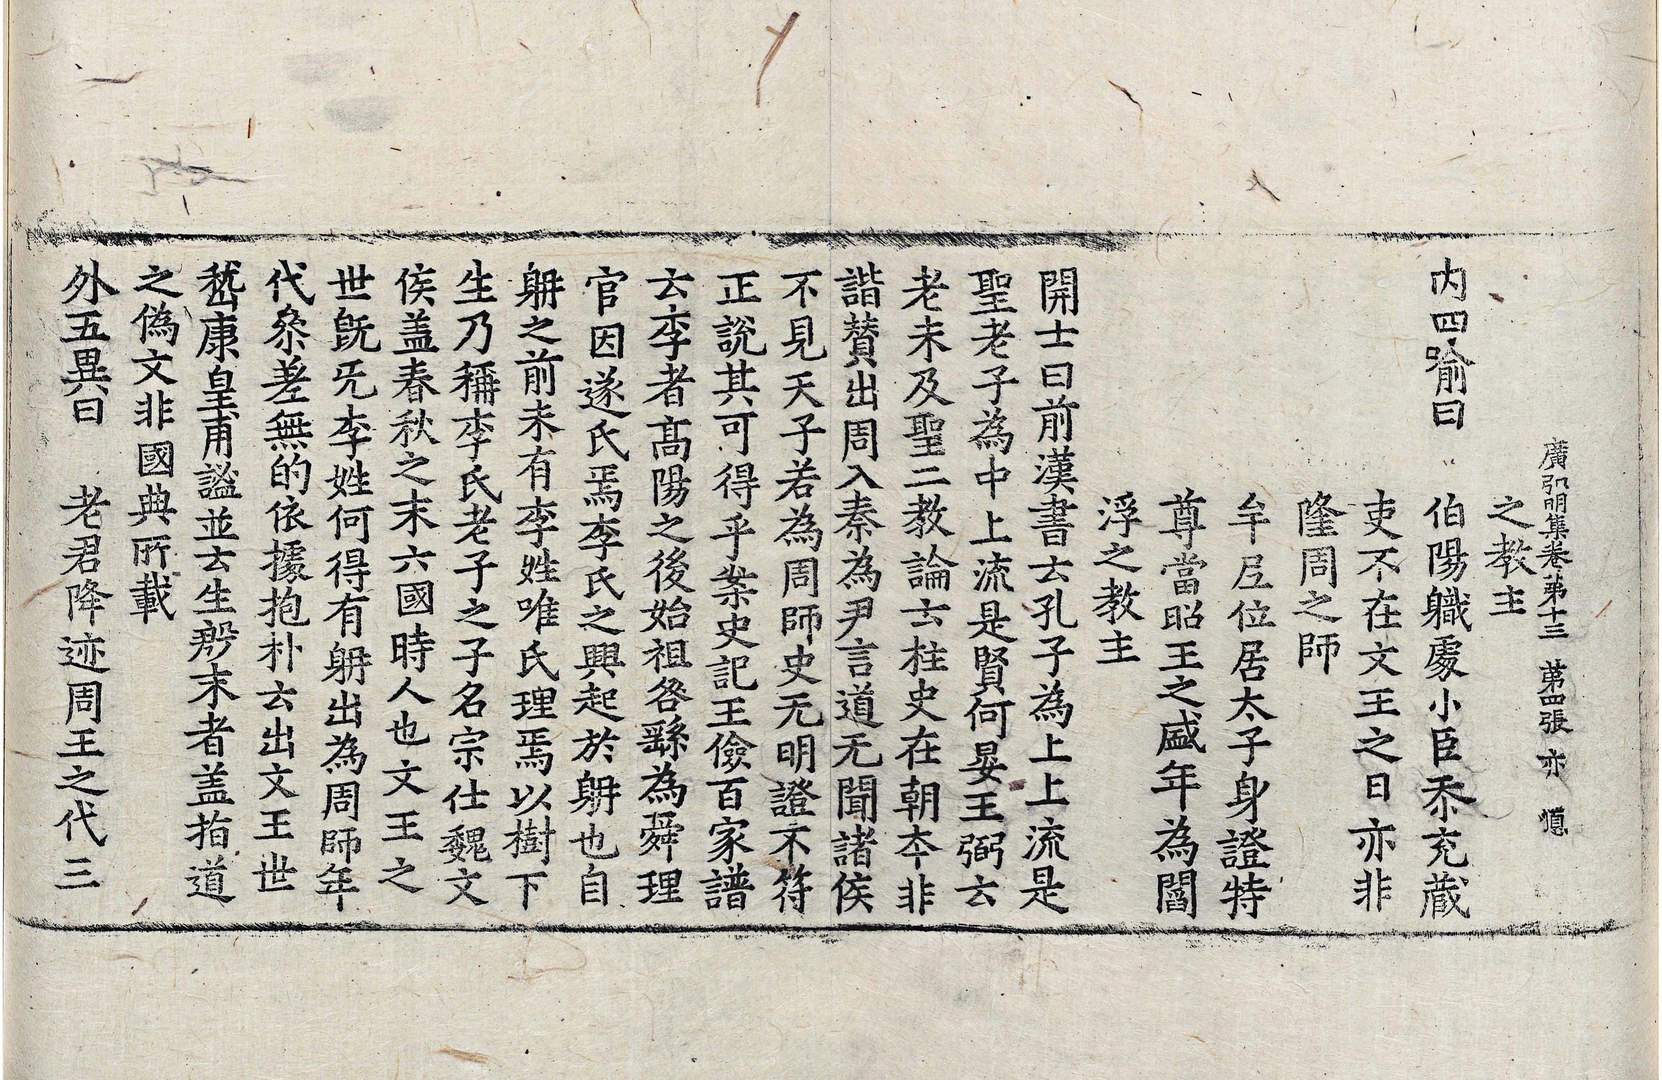 廣弘明集卷第十三 第四張 亦
之教主
内四喻曰
伯陽職處小臣忝充藏
吏不在文王之日亦非
隆周之師
牟尼位居太子身證特
尊當昭王之盛年為閻
浮之教主
開士曰前漢書云孔子為上上流是
聖老子為中上流是賢何晏王弼云
老未及聖二教論云柱史在朝本非
諧賛出周入秦為尹言道无聞諸侯
不見天子若為周師史无明證不符
正說其可得乎案史記王儉百家譜
云李者髙陽之後始祖咎繇為舜理
官因遂氏焉李氏之興起於聃也自
聃之前未有李姓唯氏理焉以樹下
生乃稱李氏老子之子名宗仕魏文
侯盖春秋之末六國時人也文王之
世旣无李姓何得有聃出為周師年
代叅差無的依據抱朴云出文王世
嵇康皇甫謐並云生殷末者盖指道
之偽文非國典所載
外五異曰 老君降迹周王之代三